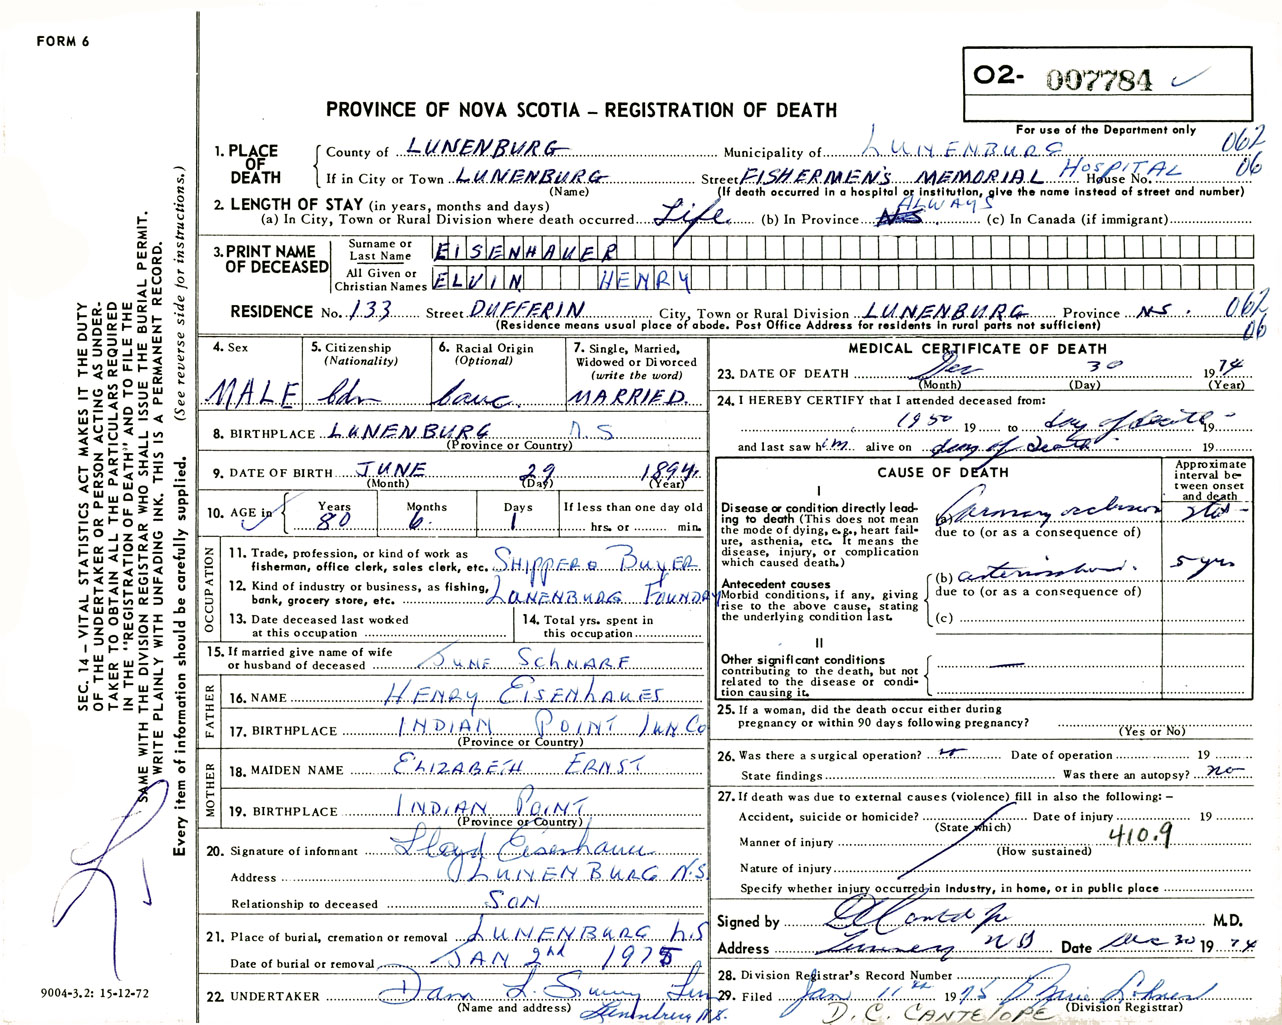 FORM 6
O2- 007784
PROVINCE OF NOVA SCOTIA – REGISTRATION OF DEATH
For use of the Department only
1. PLACE OF DEATH
County of LUNENBURG Municipality of LUNENBURG 062
If in City or Town LUNENBURG Street FISHERMEN'S MEMORIAL HOSPITAL House No. 06
(Name) (If death occurred in a hospital or institution, give the name instead of street and number)
2. LENGTH OF STAY (in years, months and days)
(a) In City, Town or Rural Division where death occurred Life (b) In Province ALWAYS (c) In Canada (if immigrant)
3. PRINT NAME OF DECEASED
Surname or Last Name EISENHAUER
All Given or Christian Names ELVIN HENRY
RESIDENCE No. 133 Street DUFFERIN City, Town or Rural Division LUNENBURG Province N.S. 062
(Residence means usual place of abode. Post Office Address for residents in rural parts not sufficient) 06
4. Sex MALE
5. Citizenship (Nationality) Cdn
6. Racial Origin (Optional) Cauc.
7. Single, Married, Widowed or Divorced (write the word) MARRIED
8. BIRTHPLACE LUNENBURG N.S
(Province or Country)
9. DATE OF BIRTH JUNE 29 1894
(Month) (Day) (Year)
10. AGE in Years 80 Months 6 Days 1 If less than one day old hrs. or min.
OCCUPATION
11. Trade, profession, or kind of work as fisherman, office clerk, sales clerk, etc. SHIPPER & BUYER
12. Kind of industry or business, as fishing, bank, grocery store, etc. LUNENBURG FOUNDRY
13. Date deceased last worked at this occupation
14. Total yrs. spent in this occupation
15. If married give name of wife or husband of deceased JUNE SCHNARE
FATHER
16. NAME HENRY EISENHAUER
17. BIRTHPLACE INDIAN POINT LUN. CO
(Province or Country)
MOTHER
18. MAIDEN NAME ELIZABETH ERNST
19. BIRTHPLACE INDIAN POINT
(Province or Country)
20. Signature of informant Lloyd Eisenhauer
Address LUNENBURG N.S.
Relationship to deceased SON
21. Place of burial, cremation or removal LUNENBURG N.S
Date of burial or removal JAN 2nd 1975
22. UNDERTAKER Dana L. Sweny
(Name and address) Lunenburg N.S.
MEDICAL CERTIFICATE OF DEATH
23. DATE OF DEATH Dec 30 1974
(Month) (Day) (Year)
24. I HEREBY CERTIFY that I attended deceased from:
1950 19 to day of death 19
and last saw him alive on day of death 19
CAUSE OF DEATH
Approximate interval between onset and death
I
Disease or condition directly leading to death (This does not mean the mode of dying, e.g., heart failure, asthenia, etc. It means the disease, injury, or complication which caused death.)
(a) Coronary occlusion
due to (or as a consequence of)
Antecedent causes
Morbid conditions, if any, giving rise to the above cause, stating the underlying condition last.
(b) 5 yrs
due to (or as a consequence of)
(c)
II
Other significant conditions contributing to the death, but not related to the disease or condition causing it.
25. If a woman, did the death occur either during pregnancy or within 90 days following pregnancy?
(Yes or No)
26. Was there a surgical operation? Date of operation 19
State findings Was there an autopsy? no
27. If death was due to external causes (violence) fill in also the following: –
Accident, suicide or homicide? Date of injury 19
(State which)
Manner of injury 410.9
(How sustained)
Nature of injury
Specify whether injury occurred in Industry, in home, or in public place
Signed by M.D.
Address Date Dec 30 1974
28. Division Registrar's Record Number
29. Filed Jan 11th 1975
(Division Registrar)
D.C. CANTELOPE
SEC. 14 – VITAL STATISTICS ACT MAKES IT THE DUTY
OF THE UNDERTAKER OR PERSON ACTING AS UNDER-
TAKER TO OBTAIN ALL THE PARTICULARS REQUIRED
IN THE "REGISTRATION OF DEATH" AND TO FILE THE
SAME WITH THE DIVISION REGISTRAR WHO SHALL ISSUE THE BURIAL PERMIT.
WRITE PLAINLY WITH UNFADING INK. THIS IS A PERMANENT RECORD.
Every item of information should be carefully supplied. (See reverse side for instructions.)
9004-3.2: 15-12-72